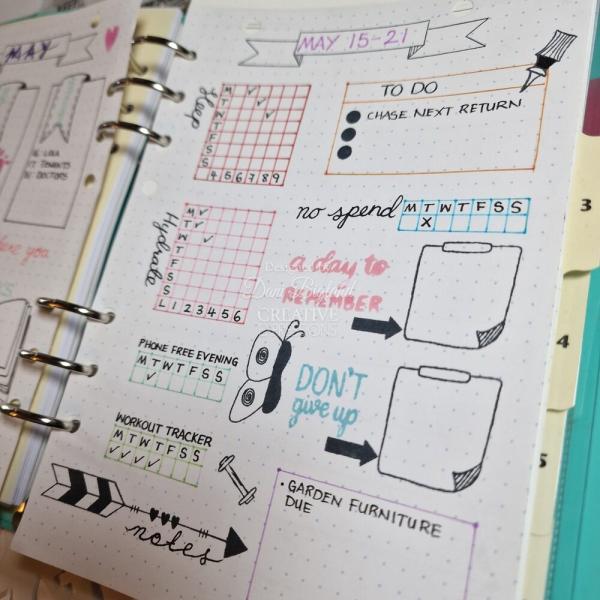 MAY
MAY 15-21
Sleep
M
T
W
T
F
S
S
4 5 6 7 8 9
TO DO
CHASE NEXT RETURN.
no spend
M T W T F S S
X
Hydrate
M
T
W
T
F
S
S
L 1 2 3 4 5 6
a day to
REMEMBER
CREATIVE
PHONE FREE EVENING
M T W T F S S
DON'T
give up
WORKOUT TRACKER
M T W T F S S
notes
· GARDEN FURNITURE
DUE
TENANTS
DOCTORS
you
3
4
5